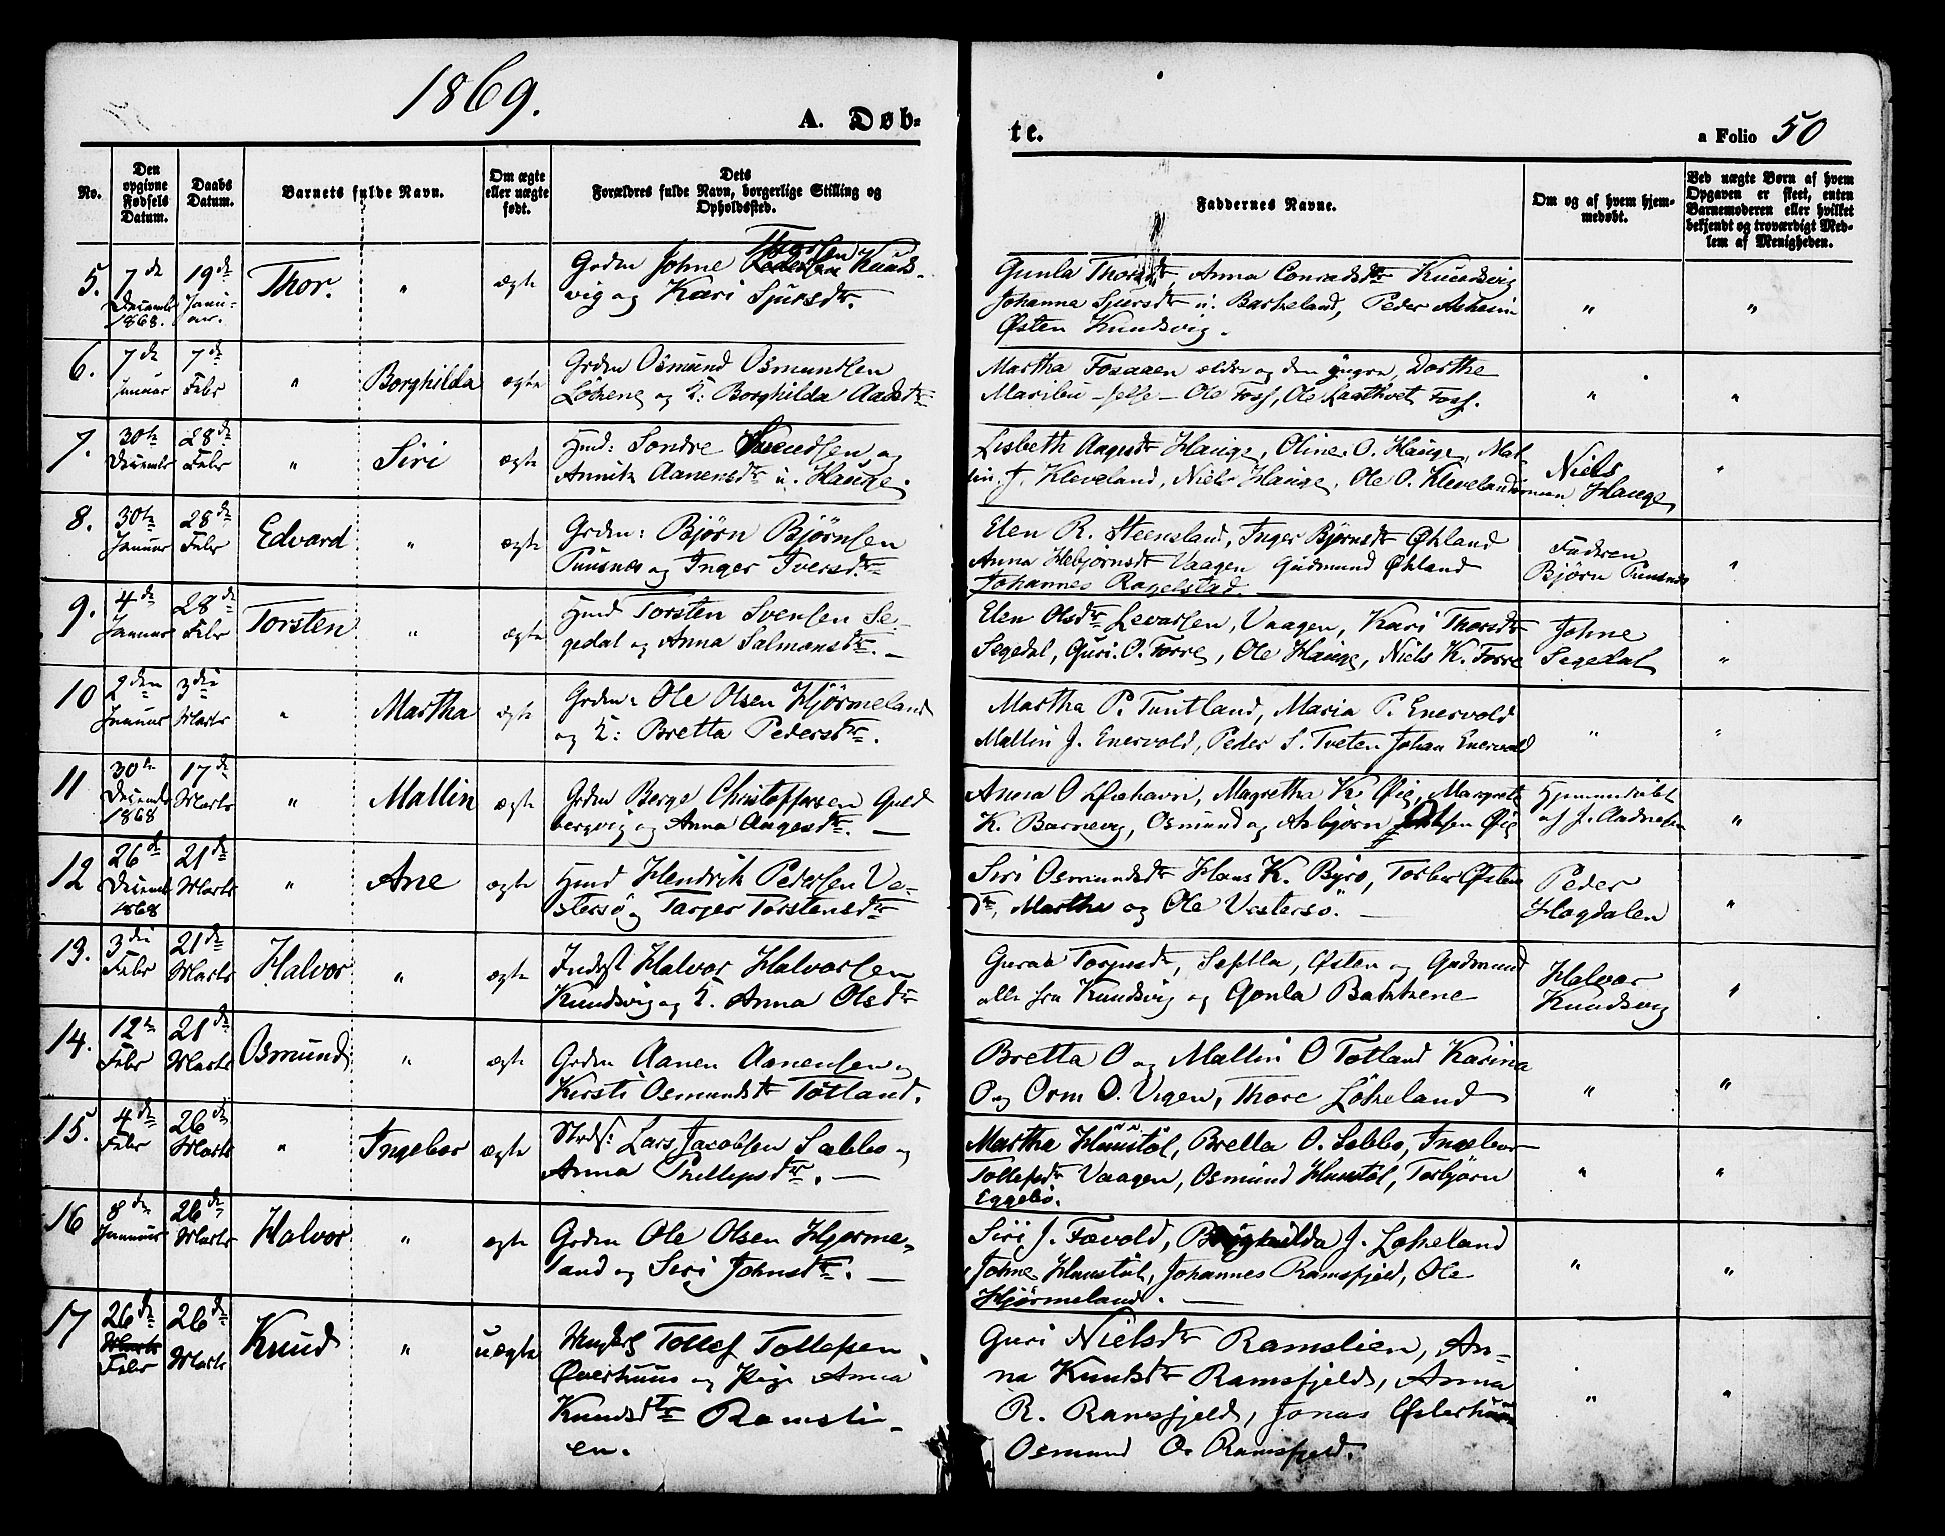 1869.
A. Døb-
te.
a Folio 50
No.
Den opgivne Fødsels Datum.
Daabs Datum.
Barnets fulde Navn.
Om ægte eller uægte født.
Dets Forældres fulde Navn, borgerlige Stilling og Opholdssted.
Faddernes Navne.
Om og af hvem hjemmedøbt.
Ved uægte Børn af hvem Opgaven er skeet, enten Barnemoderen eller hvilket bekjendt og troværdigt Medlem af Menigheden.
5. 7de Decembr 1868. 19de Januar. Thor. " ægte
Grdm Johne Thorsen Knuds-
vig og Kari Sjursdtr.
Gunla Thorsdtr, Anna Conradsdtr Knudsvig
Johanna Sjursdtr i: Barkeland, Peder Asheim
Østen Knudsvig.
" "
6. 7de Januar 7de Febr " Borghilda ægte
Grdm Osmund Osmundsen
Løkene og K: Borghilda Aadsdtr
Martha Fosaaen ældre og den yngre, Dorthe
Marileu Ole Foss, Ole Foss.
" "
7. 30te Decembr 28de Febr " Siri ægte
Hmd: Sondre Svendsen og
Annik Aanensdtr i: Hauge.
Lisbeth Aagesdtr Hauge, Oline O. Hauge, Mal-
lin J. Kleveland, Niels Hauge, Ole O. Kleveland
Niels Hauge "
8. 30te Januar 28de Febr Edvard " ægte
Grdm: Bjørn Bjørnsen
Puusnes og Inger Iversdtr
Elen R. Steensland, Inger Bjørnsdtr Øhland
Anna Hebjørnsdtr Vaagen Gudmund Øhland
Johannes Ragelstad
Faderen
Bjørn Puusnes "
9. 4de Januar 28de Febr Torsten " ægte
Hmd Torsten Svensen Se-
gedal og Anna Salmonsdtr.
Elen Olsdtr Levarsen, Vaagen, Kari Thorsdtr
Segedal, Guri. O. Torre, Ole Hauge, Niels K. Torre
Johne
Segedal "
10 2den Januar 3die Marts " Martha ægte
Grdm: Ole Olsen Hjørmeland
og K: Bretta Pedersdtr.
Martha P. Tuntland, Maria P. Enervold
Mallin J. Enervold, Peder S. Tveten Johan Enervold
" "
11 30te Decembr 1868 17de Marts " Mallin ægte
Grdm Berge Christoffersen Guld
bergvig og Anna Aagesdtr.
Anna O Ovehavn, Magretha K. Øig, Margrete
K. Barnevig, Osmund og Asbjørn Øig
Hjemmedøbt
af J. Aadnesen "
12 26d Decembr 1868 21de Marts " Ane ægte
Hmd Hendrik Pedersen Ve-
stersø og Tarjer Torstensdtr
Siri Osmundsdtr Hans K. Byrø, Torber Østens
dtr, Martha og Ole Vestersø.
Peder
Hogdalen "
13. 3die Febr 21de Marts Halvor " ægte
Inderst Halvor Halvorsen
Knudsvig og K. Anna Olsdtr
Guraa Torjusdtr, Seflla, Østen og Gudmund
alle fra Knudsvig og Gonla Bakkene
Halvor
Knudsvig "
14. 12te Febr 21de Marts Osmund " ægte
Grdm Aanen Aanensen og
Kirsti Osmundsdtr Totland.
Bretta O og Mallin O Totland Karina
O og Orm O. Vigen, Thore Løkeland
" "
15. 4de Febr 26de Marts " Ingebor ægte
Strds: Lars Jacobsen Sæbbø og
Anna Phillepsdtr.
Martha Humstøl, Bretta O. Sebbø, Ingebor
Tollefsdtr Vaagen, Osmund Humstøl, Torbjørn
Eggebø.
" "
16 8de Januar 26de Marts Halvor " ægte
Grdm Ole Olsen Hjørme-
land og Siri Johnsdtr.
Siri J. Fævold, Borghilda J. Løkeland
Johne Humstøl, Johannes Ramsfjeld, Ole
Hjørmeland.
" "
17 26de Marts Febr 26de Marts Knud " uægte
Ungkrl Tollef Tollefsen
Øverhuus og Pige Anna
Knudsdtr Ramsli-
en.
Guri Nielsdtr Ramslien, An-
na Knudsdtr Ramsfjeld, Anna
R. Ramsfjeld, Jonas Østerhuus
Osmund O. Ramsfjeld.
" "